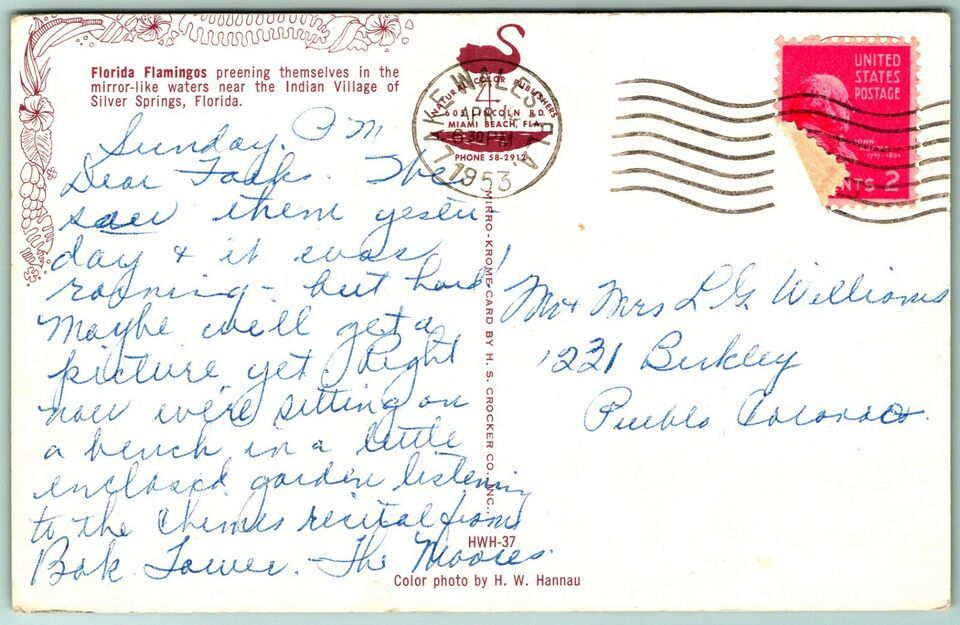 Florida Flamingos preening themselves in the
mirror-like waters near the Indian Village of
Silver Springs, Florida.
NATURAL COLOR PUBLISHERS
605 LINCOLN RD.
MIAMI BEACH, FLA.
PHONE 58-2912
LAKE WALES FLA
6 30 PM
1953
UNITED
STATES
POSTAGE
JOHN
NTS 2
Sunday. PM
Dear Folks. We
saw them yester-
day & it was
raining - but hard!
Maybe we'll get a
picture yet. Right
now we're sitting on
a bench in a little
enclosed garden listening
to the chimes recital from
Bok Tower. The Moores.
Mr & Mrs L G. Williams
1221 Berkley
Pueblo Colorado.
MIRRO-KROME CARD BY H. S. CROCKER CO., INC.
HWH-37
Color photo by H. W. Hannau